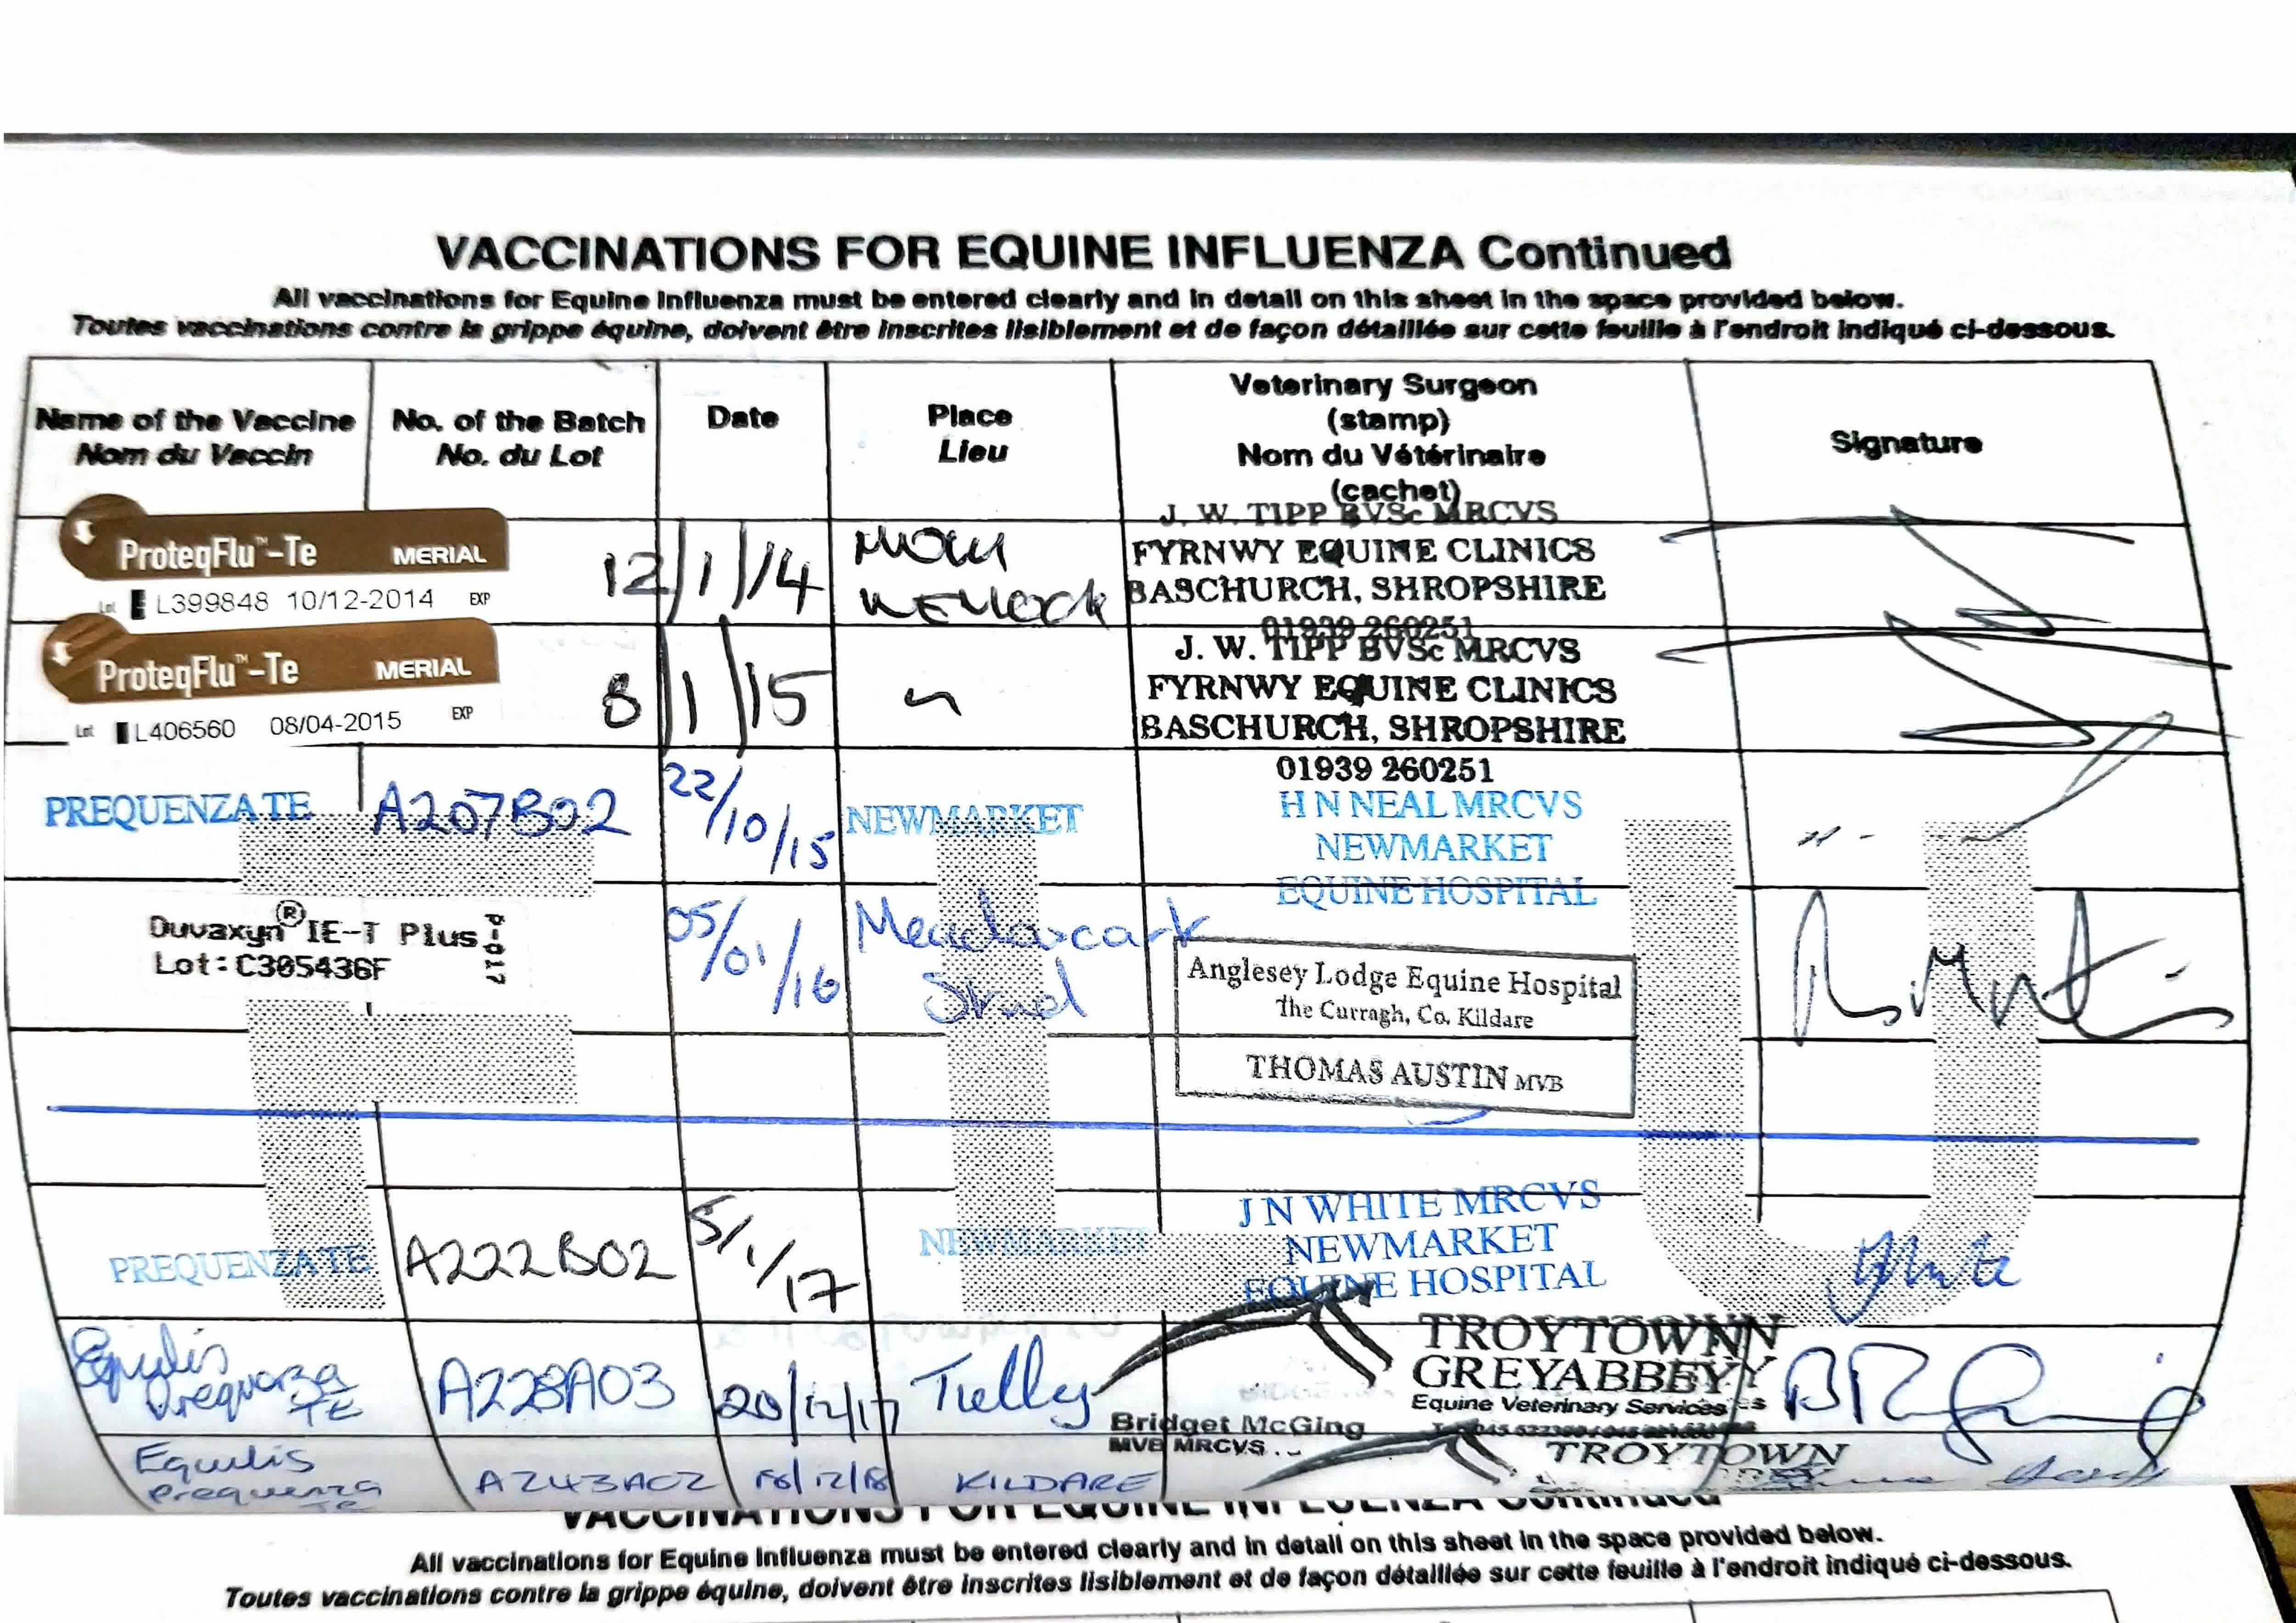 VACCINATIONS FOR EQUINE INFLUENZA Continued
All vaccinations for Equine Influenza must be entered clearly and in detail on this sheet in the space provided below.
Toutes vaccinations contre la grippe équine, doivent être inscrites lisiblement et de façon détaillée sur cette feuille à l'endroit indiqué ci-dessous.
Name of the Vaccine
Nom du Vaccin
No. of the Batch
No. du Lot
Date
Place
Lieu
Veterinary Surgeon
(stamp)
Nom du Vétérinaire
(cachet)
Signature
ProteqFlu™-Te MERIAL
Lot L399848 10/12-2014 EXP
12/1/14
J. W. TIPP BVSc MRCVS
FYRNWY EQUINE CLINICS
BASCHURCH, SHROPSHIRE
01939 260251
ProteqFlu™-Te MERIAL
Lot L406560 08/04-2015 EXP
8/1/15
J. W. TIPP BVSc MRCVS
FYRNWY EQUINE CLINICS
BASCHURCH, SHROPSHIRE
01939 260251
PREQUENZA TE
A207B02
22/10/15
NEWMARKET
H N NEAL MRCVS
NEWMARKET
EQUINE HOSPITAL
Duvaxyn® IE-T Plus
Lot: C305436F
P-017
05/01/16
Stud
Anglesey Lodge Equine Hospital
The Curragh, Co. Kildare
THOMAS AUSTIN MVB
PREQUENZA TE
A222B02
5/1/17
NEWMARKET
J N WHITE MRCVS
NEWMARKET
EQUINE HOSPITAL
White
Equilis
Prequenza
TE
A228A03
20/12/17
Tully
TROYTOWN
GREYABBEY
Equine Veterinary Services
Bridget McGing
MVB MRCVS
Equilis
Prequenza
Te
A243A02
18/12/18
KILDARE
TROYTOWN
VACCINATIONS FOR EQUINE INFLUENZA Continued
All vaccinations for Equine Influenza must be entered clearly and in detail on this sheet in the space provided below.
Toutes vaccinations contre la grippe équine, doivent être inscrites lisiblement et de façon détaillée sur cette feuille à l'endroit indiqué ci-dessous.